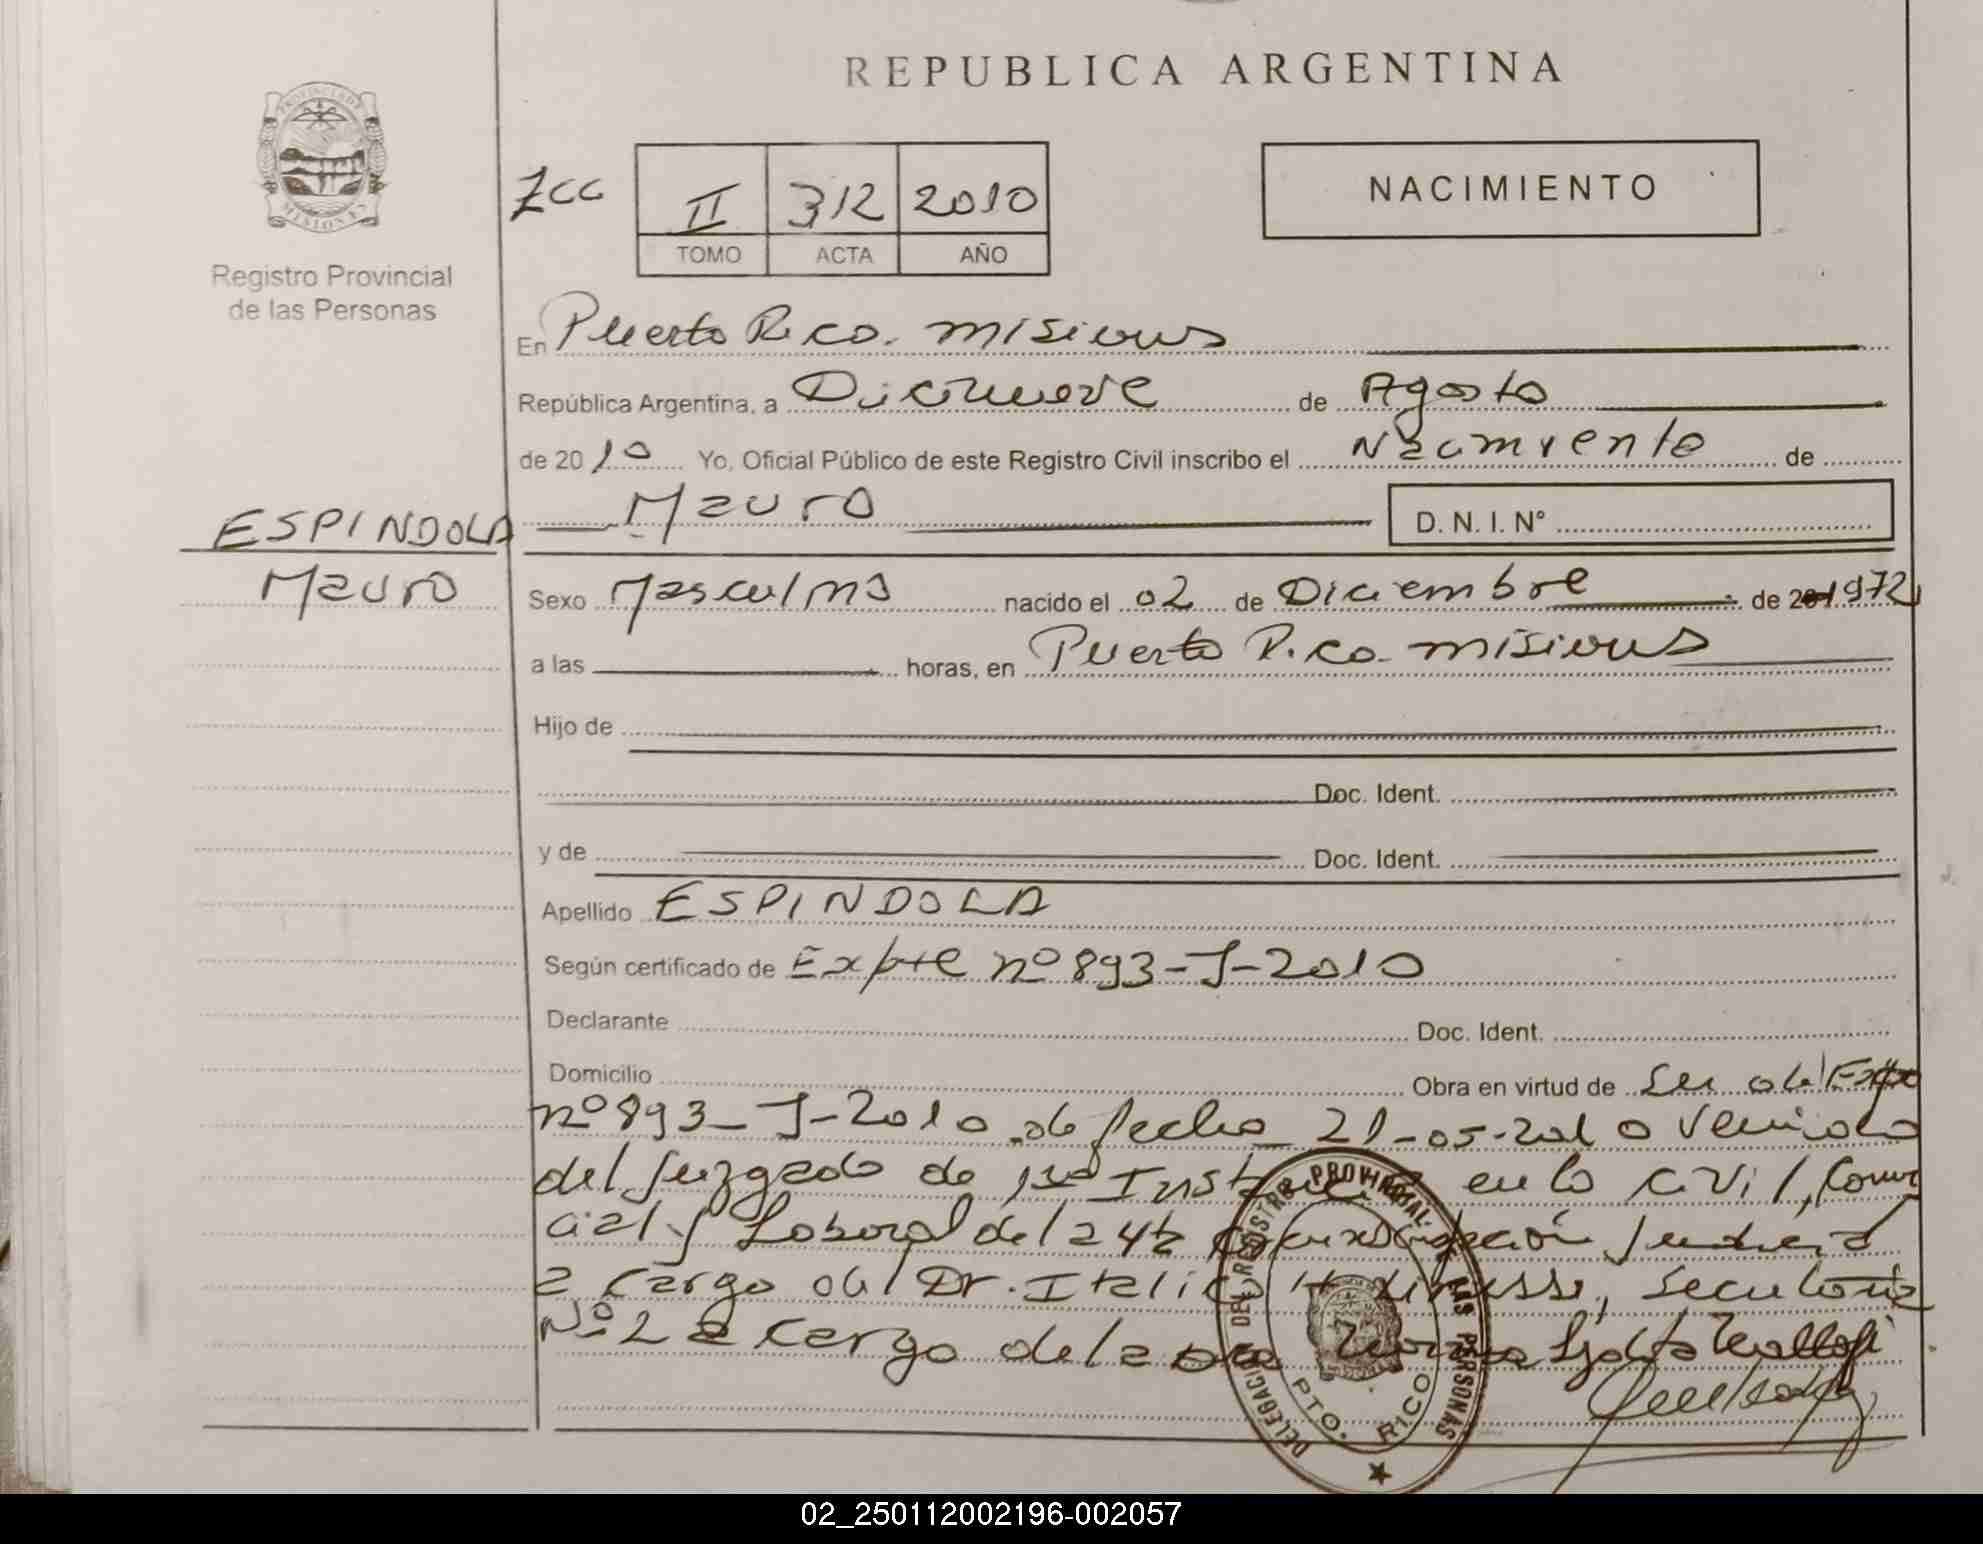 REPUBLICA ARGENTINA
PROVINCIA DE MISIONES
Registro Provincial
de las Personas
II 312 2010
TOMO ACTA AÑO
NACIMIENTO
En Puerto Rico. Misiones
República Argentina, a Diecinueve de Agosto
de 2010 Yo, Oficial Público de este Registro Civil inscribo el Nacimiento de
Mauro D. N. I. Nº
ESPINDOLA
Mauro
Sexo Masculino nacido el 02 de Diciembre de 1972
a las horas, en Puerto Rico. Misiones
Hijo de
Doc. Ident.
y de Doc. Ident.
Apellido ESPINDOLA
Según certificado de Expte nº 893-J-2010
Declarante Doc. Ident.
Domicilio Obra en virtud de
nº 893-J-2010 de fecha 21-05-2010
del Juzgado de 1ra en lo Civil, Comer
cial y Laboral de la 4ta
a cargo del Dr.
Nº 2 a cargo de la
DELEGACION DEL REGISTRO PROVINCIAL DE LAS PERSONAS
PTO. RICO
02_250112002196-002057